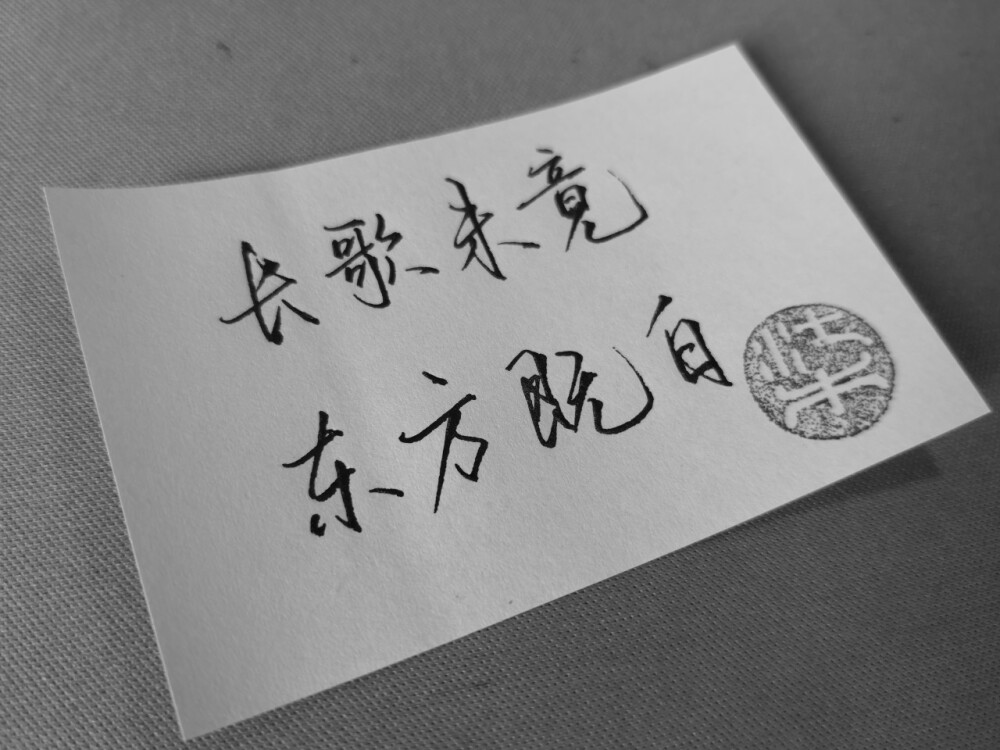 长歌未竟
东方既白